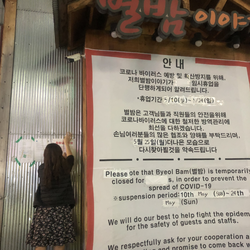 별밤 이야
안 내
코로나 바이러스 예방 및 확산방지를 위해,
저희별밤이야기가 임시휴업을
단행하게되어 알려드립니다.
-휴업기간 : /10( )~ /24(일)
별밤은 고객님들과 직원들의 안전을위해
코로나바이러스에 대한 철저한 방역관리에
최선을 다하겠습니다.
손님여러분들의 많은 협조와 양해를 부탁드리며,
5월 25일(월)더나은 모습으로
다시찾아뵐것을 약속드립니다
Please note that Byeol Bam(별밤) is temporarily
closed for , in order to prevent the
spread of COVID-19
suspension period: 10th May (Sun)~24th
May (Sun)
We will do our best to help fight the epidem
for the safety of guests and staffs.
We respectfully ask for your cooperation a
and promise to come bac